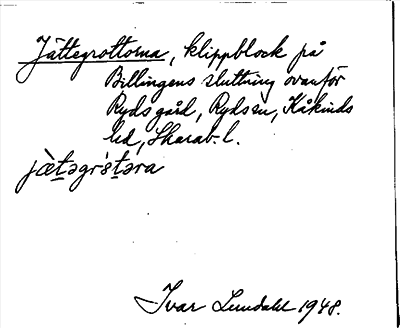 Jättegrottorna, klippblock på
Billingens sluttning ovanför
Ryds gård, Rydssn, Kåkinds
hd, Skarab. l.
jæ̀təgrs̀təra
Ivar Lundahl 1948.